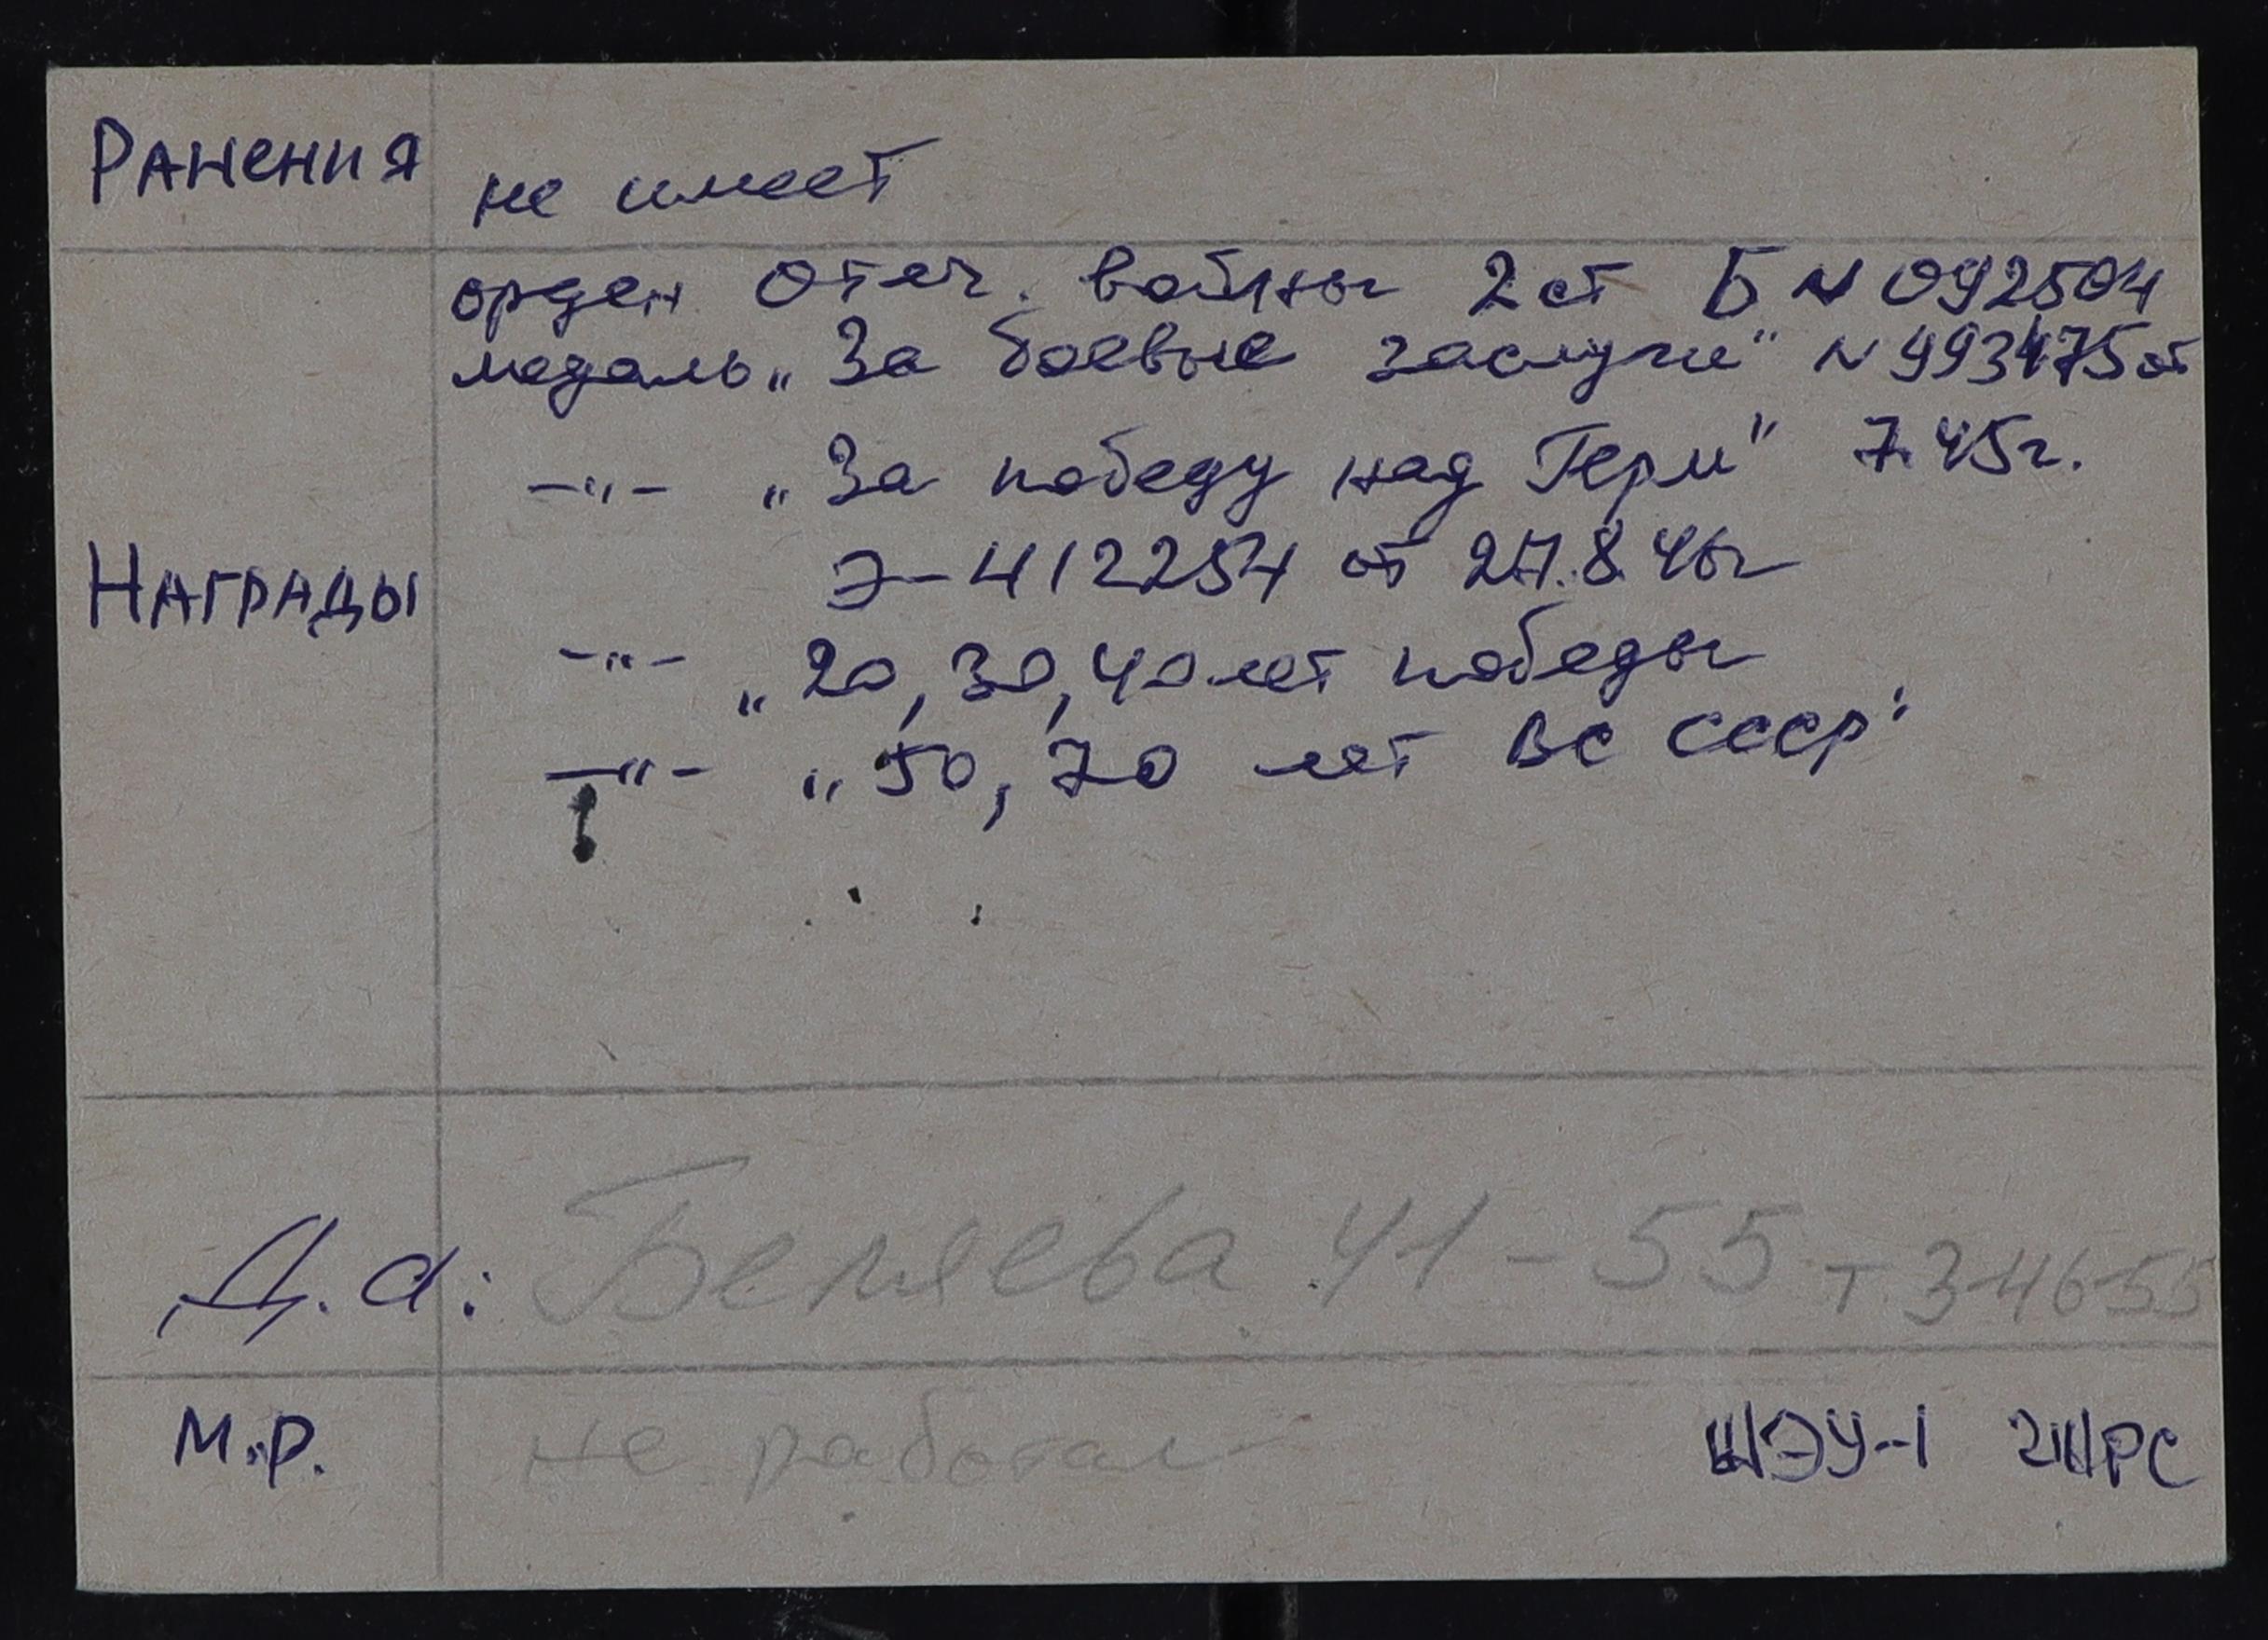 Ранения не имеет
орден Отеч. войны 2 ст Б N 092504
медаль „За боевые заслуги" N 993475 от
—"— „За победу над Герм" 7.45г.
Э-412254 от 27.8.46г
Награды
—"— „20, 30, 40 лет победы
—"— „50, 70 лет ВС СССР"
Д.а: Беляева 41-55 т 3-46-55
М.р. не работал ШЭУ-1 2ШРС